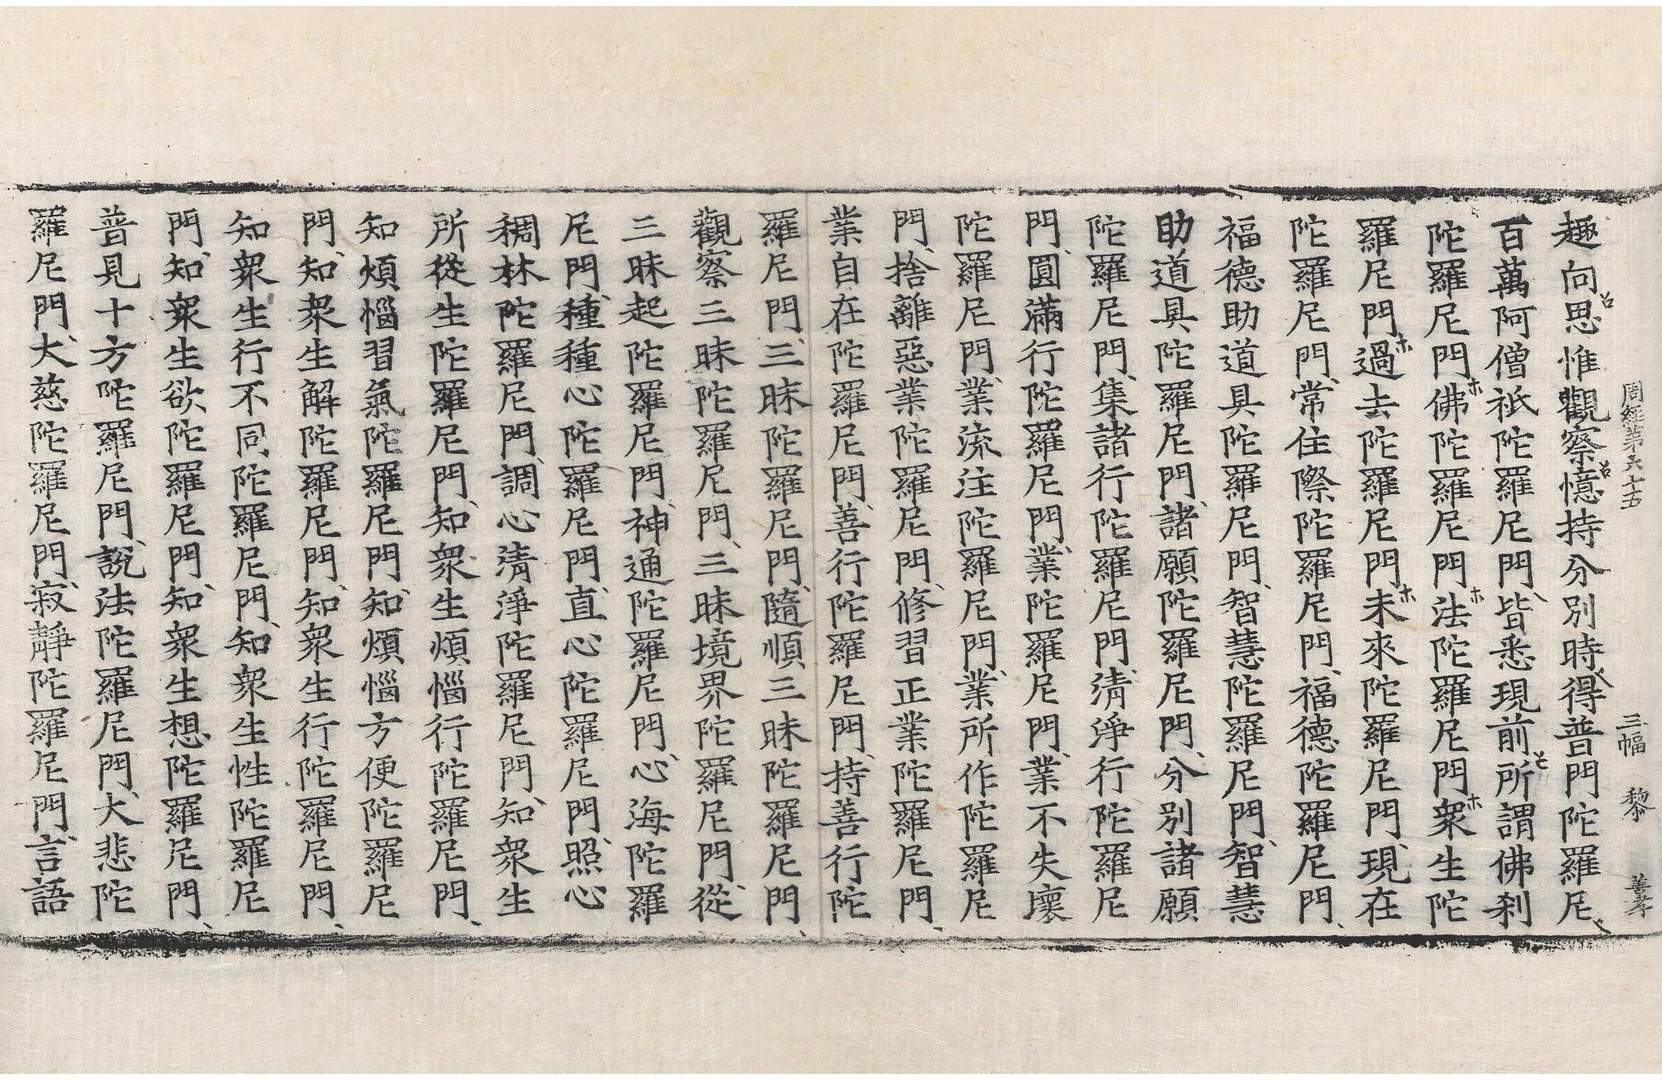 周經第六七五 三幅 黎 善孝
趣向思惟觀察憶持分別時得普門陀羅尼
百萬阿僧祇陀羅尼門皆悉現前所謂佛刹
陀羅尼門佛陀羅尼門法陀羅尼門衆生陀
羅尼門過去陀羅尼門未來陀羅尼門現在
陀羅尼門常住際陀羅尼門福德陀羅尼門
福德助道具陀羅尼門智慧陀羅尼門智慧
助道具陀羅尼門諸願陀羅尼門分別諸願
陀羅尼門集諸行陀羅尼門清淨行陀羅尼
門圓滿行陀羅尼門業陀羅尼門業不失壞
陀羅尼門業流注陀羅尼門業所作陀羅尼
門捨離惡業陀羅尼門修習正業陀羅尼門
業自在陀羅尼門善行陀羅尼門持善行陀
羅尼門三昧陀羅尼門隨順三昧陀羅尼門
觀察三昧陀羅尼門三昧境界陀羅尼門從
三昧起陀羅尼門神通陀羅尼門心海陀羅
尼門種種心陀羅尼門直心陀羅尼門照心
稠林陀羅尼門調心清淨陀羅尼門知衆生
所從生陀羅尼門知衆生煩惱行陀羅尼門
知煩惱習氣陀羅尼門知煩惱方便陀羅尼
門知衆生解陀羅尼門知衆生行陀羅尼門
知衆生行不同陀羅尼門知衆生性陀羅尼
門知衆生欲陀羅尼門知衆生想陀羅尼門
普見十方陀羅尼門說法陀羅尼門大悲陀
羅尼門大慈陀羅尼門寂靜陀羅尼門言語